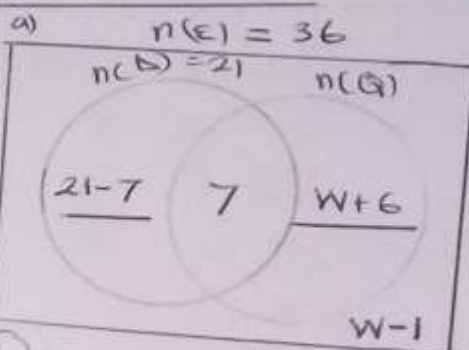 a) n(ε) = 36
n(D) = 21 n(Q)
21-7 7 W+6
W-1